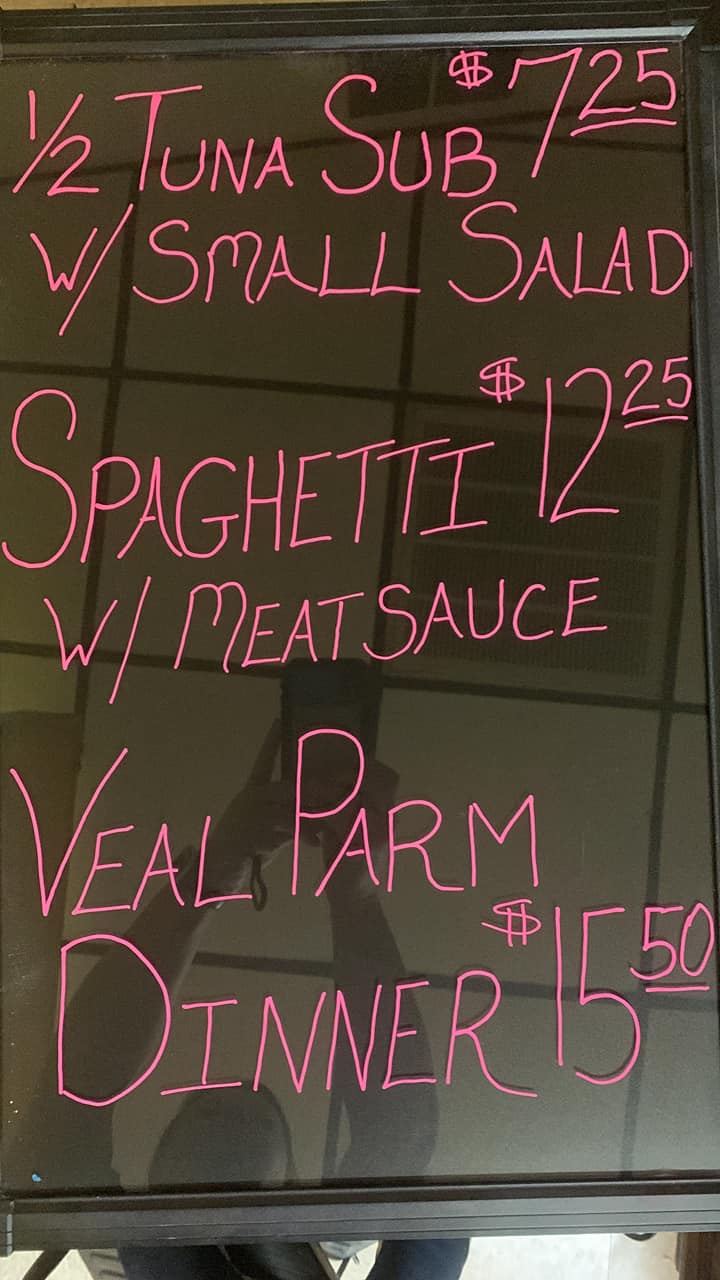 1/2 TUNA SUB $7.25
W/ SMALL SALAD
SPAGHETTI $12.25
W/ MEAT SAUCE
VEAL PARM
DINNER $15.50